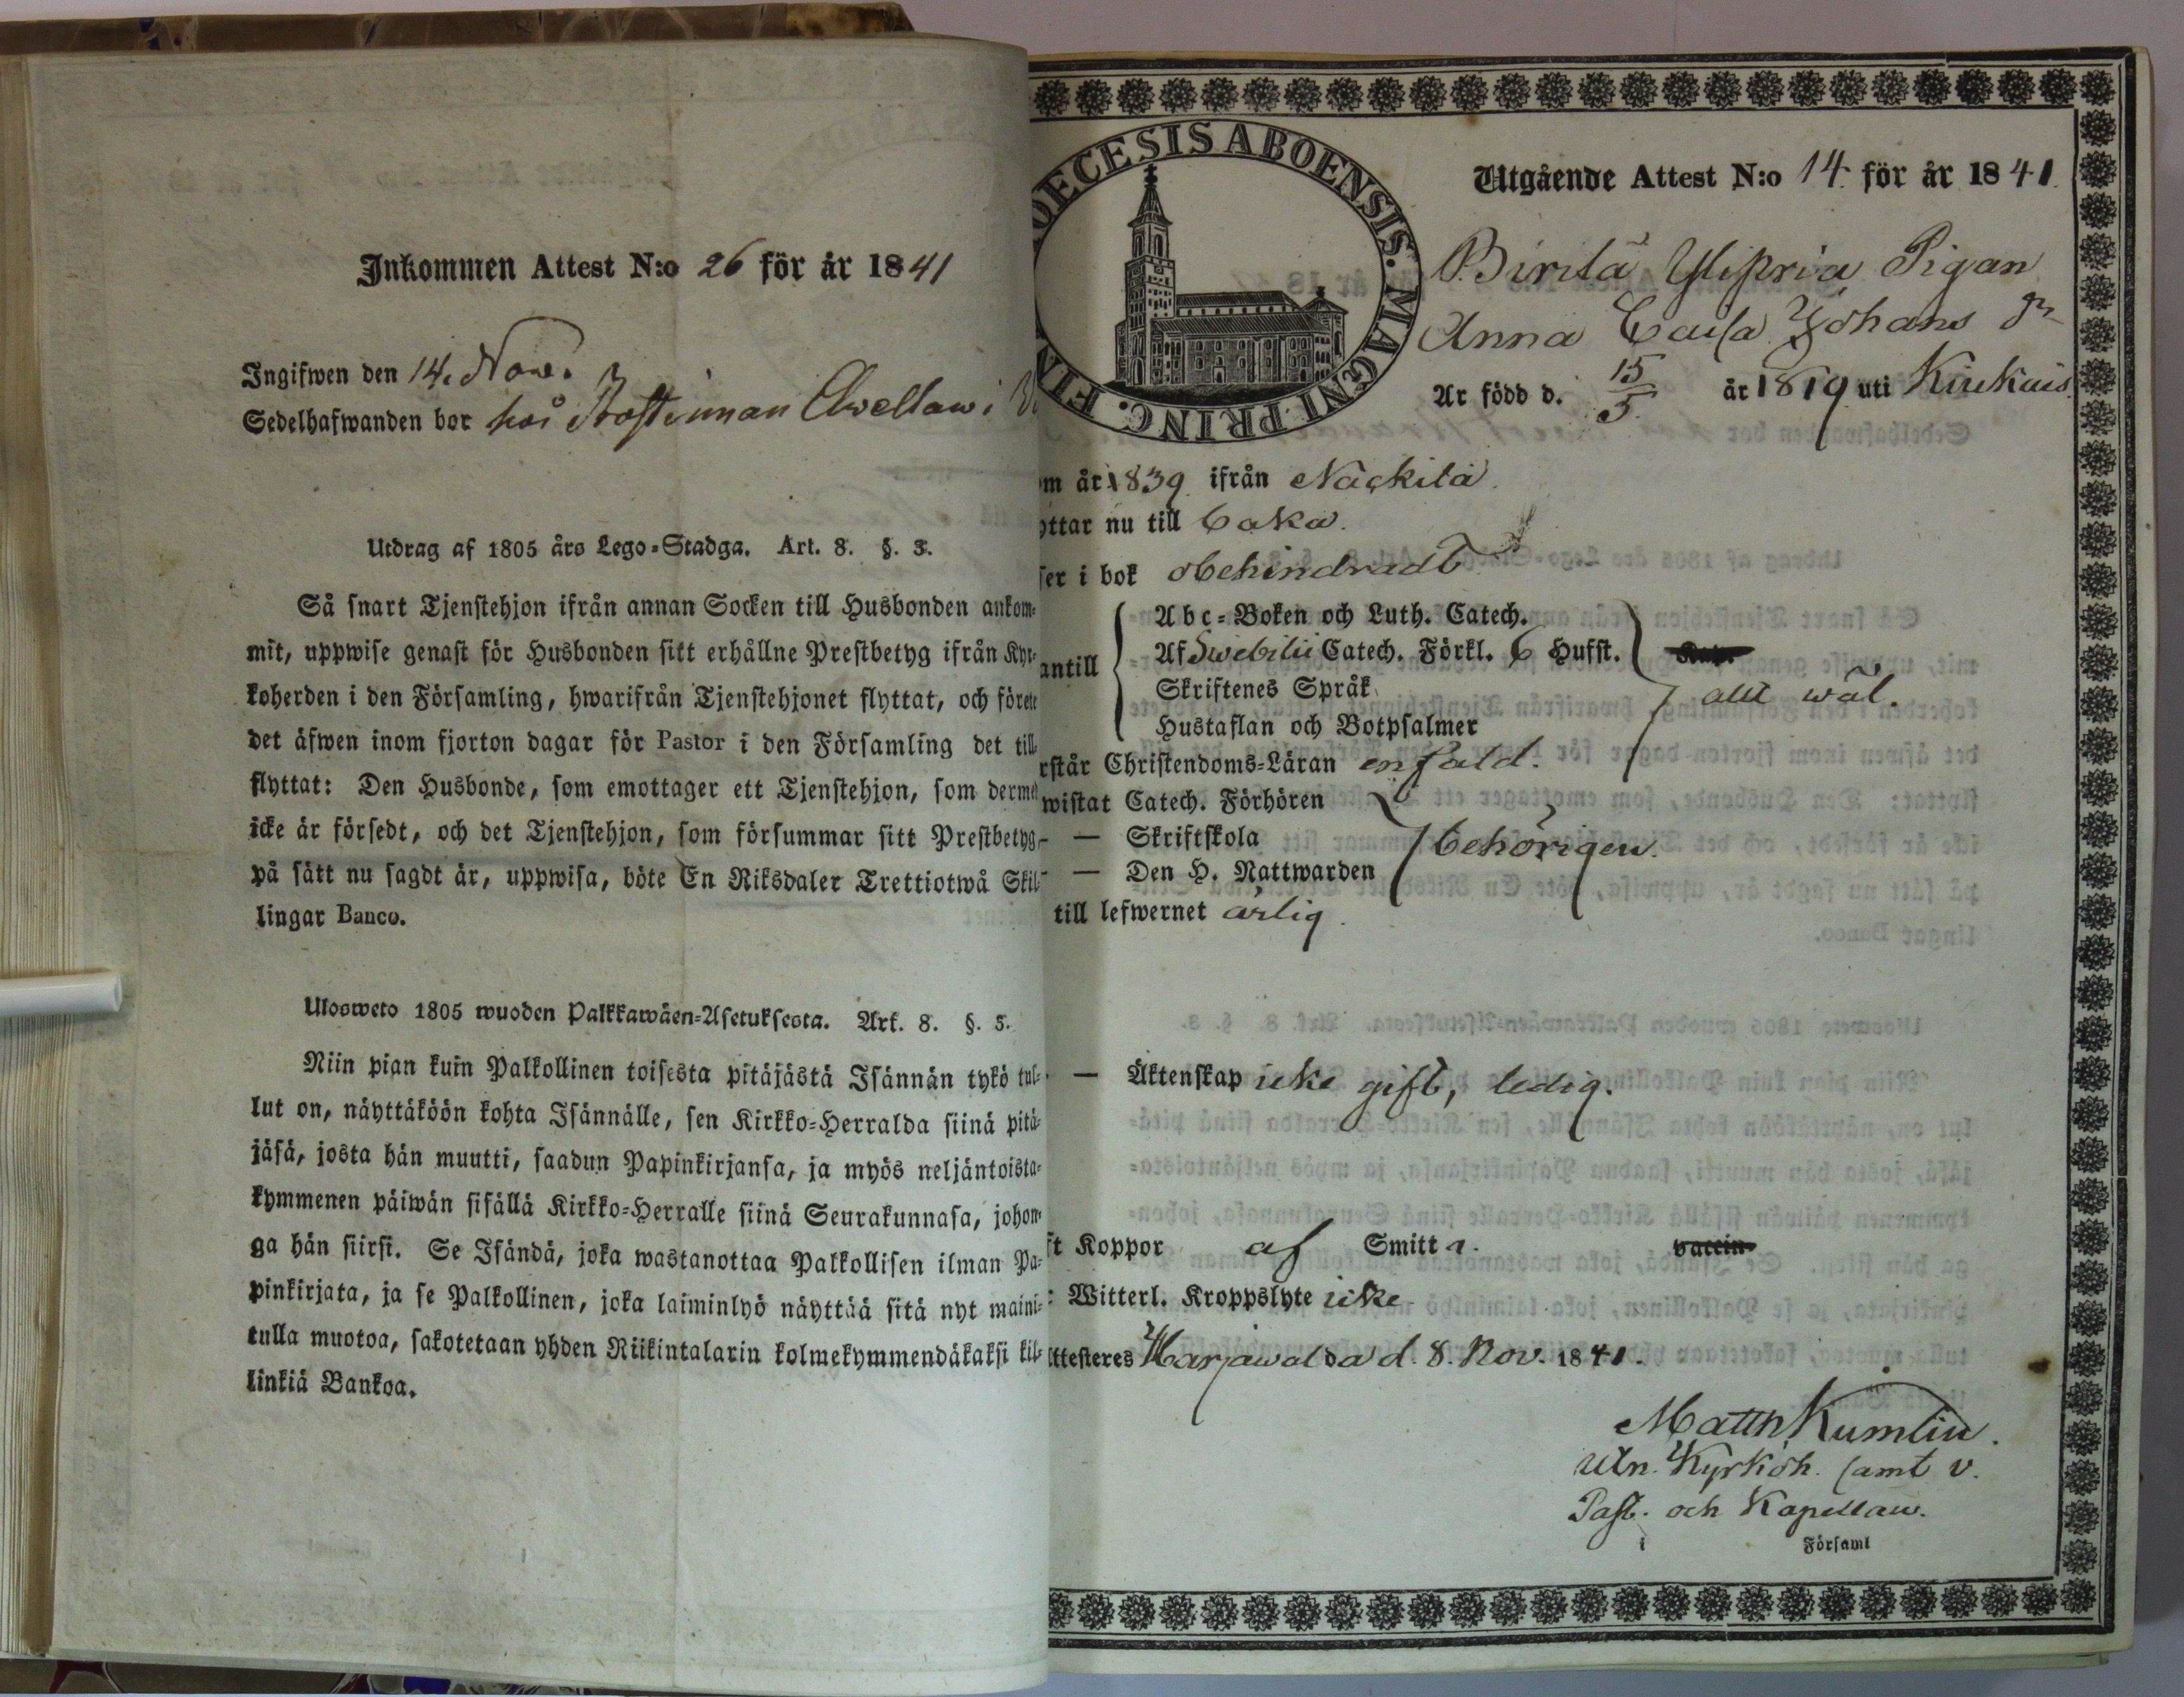 Inkommen Attest N:o 26 för år 1841
Ingifwen den 14. Nov.
Sedelhafwanden bor hos
Utdrag af 1805 års Lego-Stadga. Art. 8. §. 3.
Så snart Tjenstehjon ifrån annan Socken till Husbonden ankom-
mit, uppwise genast för Husbonden sitt erhållne Prestbetyg ifrån Kyr-
koherden i den Församling, hwarifrån Tjenstehjonet flyttat, och förete
det äfwen inom fjorton dagar för Pastor i den Församling det till-
flyttat: Den Husbonde, som emottager ett Tjenstehjon, som dermed
icke är försedt, och det Tjenstehjon, som försummar sitt Prestbetyg,
på sätt nu sagdt är, uppwisa, böte En Riksdaler Trettiotwå Skil-
lingar Banco.
Ulosweto 1805 wuoden Palkkawäen-Asetuksesta. Art. 8. §. 3.
Niin pian kuin Palkollinen toisesta pitäjästä Isännän tykö tul-
lut on, näyttäköön kohta Isännälle, sen Kirkko-Herralda siinä pitä-
jäsä, josta hän muutti, saadun Papinkirjansa, ja myös neljäntoista-
kymmenen päiwän sisällä Kirkko-Herralle siinä Seurakunnasa, johon-
ga hän siirsi. Se Isändä, joka wastanottaa Palkollisen ilman Pa-
pinkirjata, ja se Palkollinen, joka laiminlyö näyttää sitä nyt maini-
tulla muotoa, sakotetaan yhden Riikintalarin kolmekymmendäkaksi kil-
linkiä Bankoa.
OECESIS ABOENSIS. MAGNI PRINC. FIN
Utgående Attest N:o 14. för år 1841.
Birilä Ylipria Pigan
Anna Caisa Johans dr
Är född d. 15/5 år 1819 uti Kiukais
om år 1839 ifrån Nackila
yttar nu till
ser i bok obehindradt
antill
Abc-Boken och Luth. Catech.
Af Swebilii Catech. Förkl. 6 Hufst.
Skriftenes Språk
Hustaflan och Botpsalmer
allt wäl.
rstår Christendoms-Läran enfald.
wistat Catech. Förhören
— — Skriftskola
— — Den H. Nattwarden
behörigen.
till lefwernet ärlig.
— Äktenskap icke gift, ledig.
ft Koppor af Smitta. vaccin
: Witterl. Kroppslyte icke
ttesteres Harjawalda d. 8. Nov. 1841.
Matth Kumlin.
Utn. Kyrkoh. samt v.
Past. och Kapellan.
i Församl